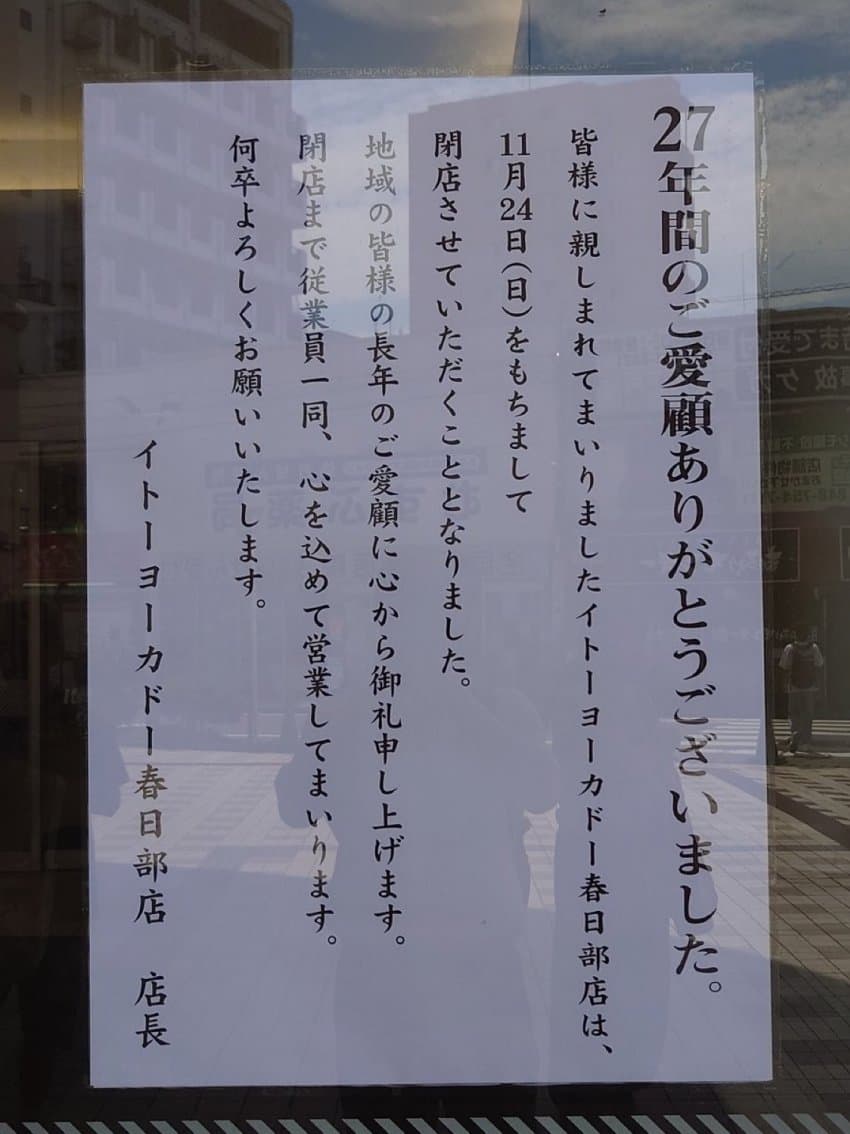 27年間のご愛顧ありがとうございました。
皆様に親しまれてまいりましたイトーヨーカドー春日部店は、
11月24日(日)をもちまして
閉店させていただくこととなりました。
地域の皆様の長年のご愛顧に心から御礼申し上げます。
閉店まで従業員一同、心を込めて営業してまいります。
何卒よろしくお願いいたします。
イトーヨーカドー春日部店　店長